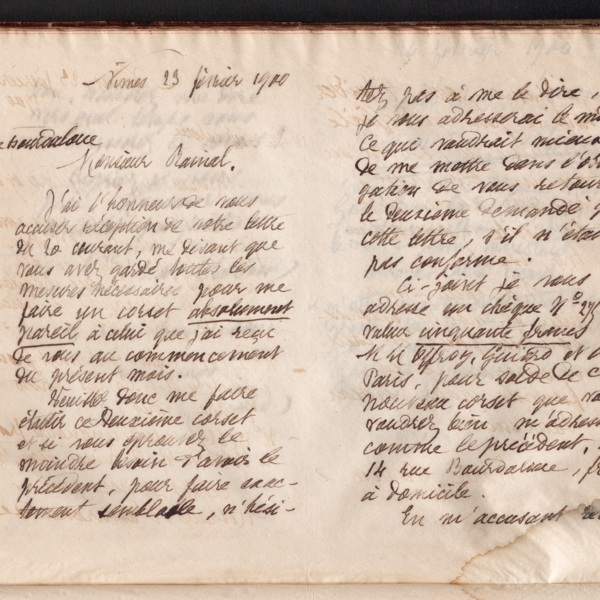 Nimes 23 février 1900
Monsieur Rainal.
J'ai l'honneur de vous
accuser réception de votre lettre
du 20 courant, me disant que
vous avez gardé toutes les
mesures nécessaires pour me
faire un corset absolument
pareil à celui que j'ai reçu
de vous au commencement
du présent mois.
Veuillez donc me faire
établir ce deuxième corset
et si vous éprouvez le
moindre besoin d'avoir le
précédent, pour faire exac-
tement semblable, n'hési-
tez pas à me le dire,
je vous adresserai le
ce qui vaudrait mieux
de me mettre dans l'
gation de vous retour
le deuxième demandé
cette lettre, s'il n'était
pas conforme.
Ci-joint je vous
adresse un chèque N°
valeur cinquante francs
Offroy, Guiard et
Paris, pour solde de
nouveau corset que
voudrez bien m'adress
comme le précédent,
14 rue Bourdaloue,
à domicile.
En m'accusant